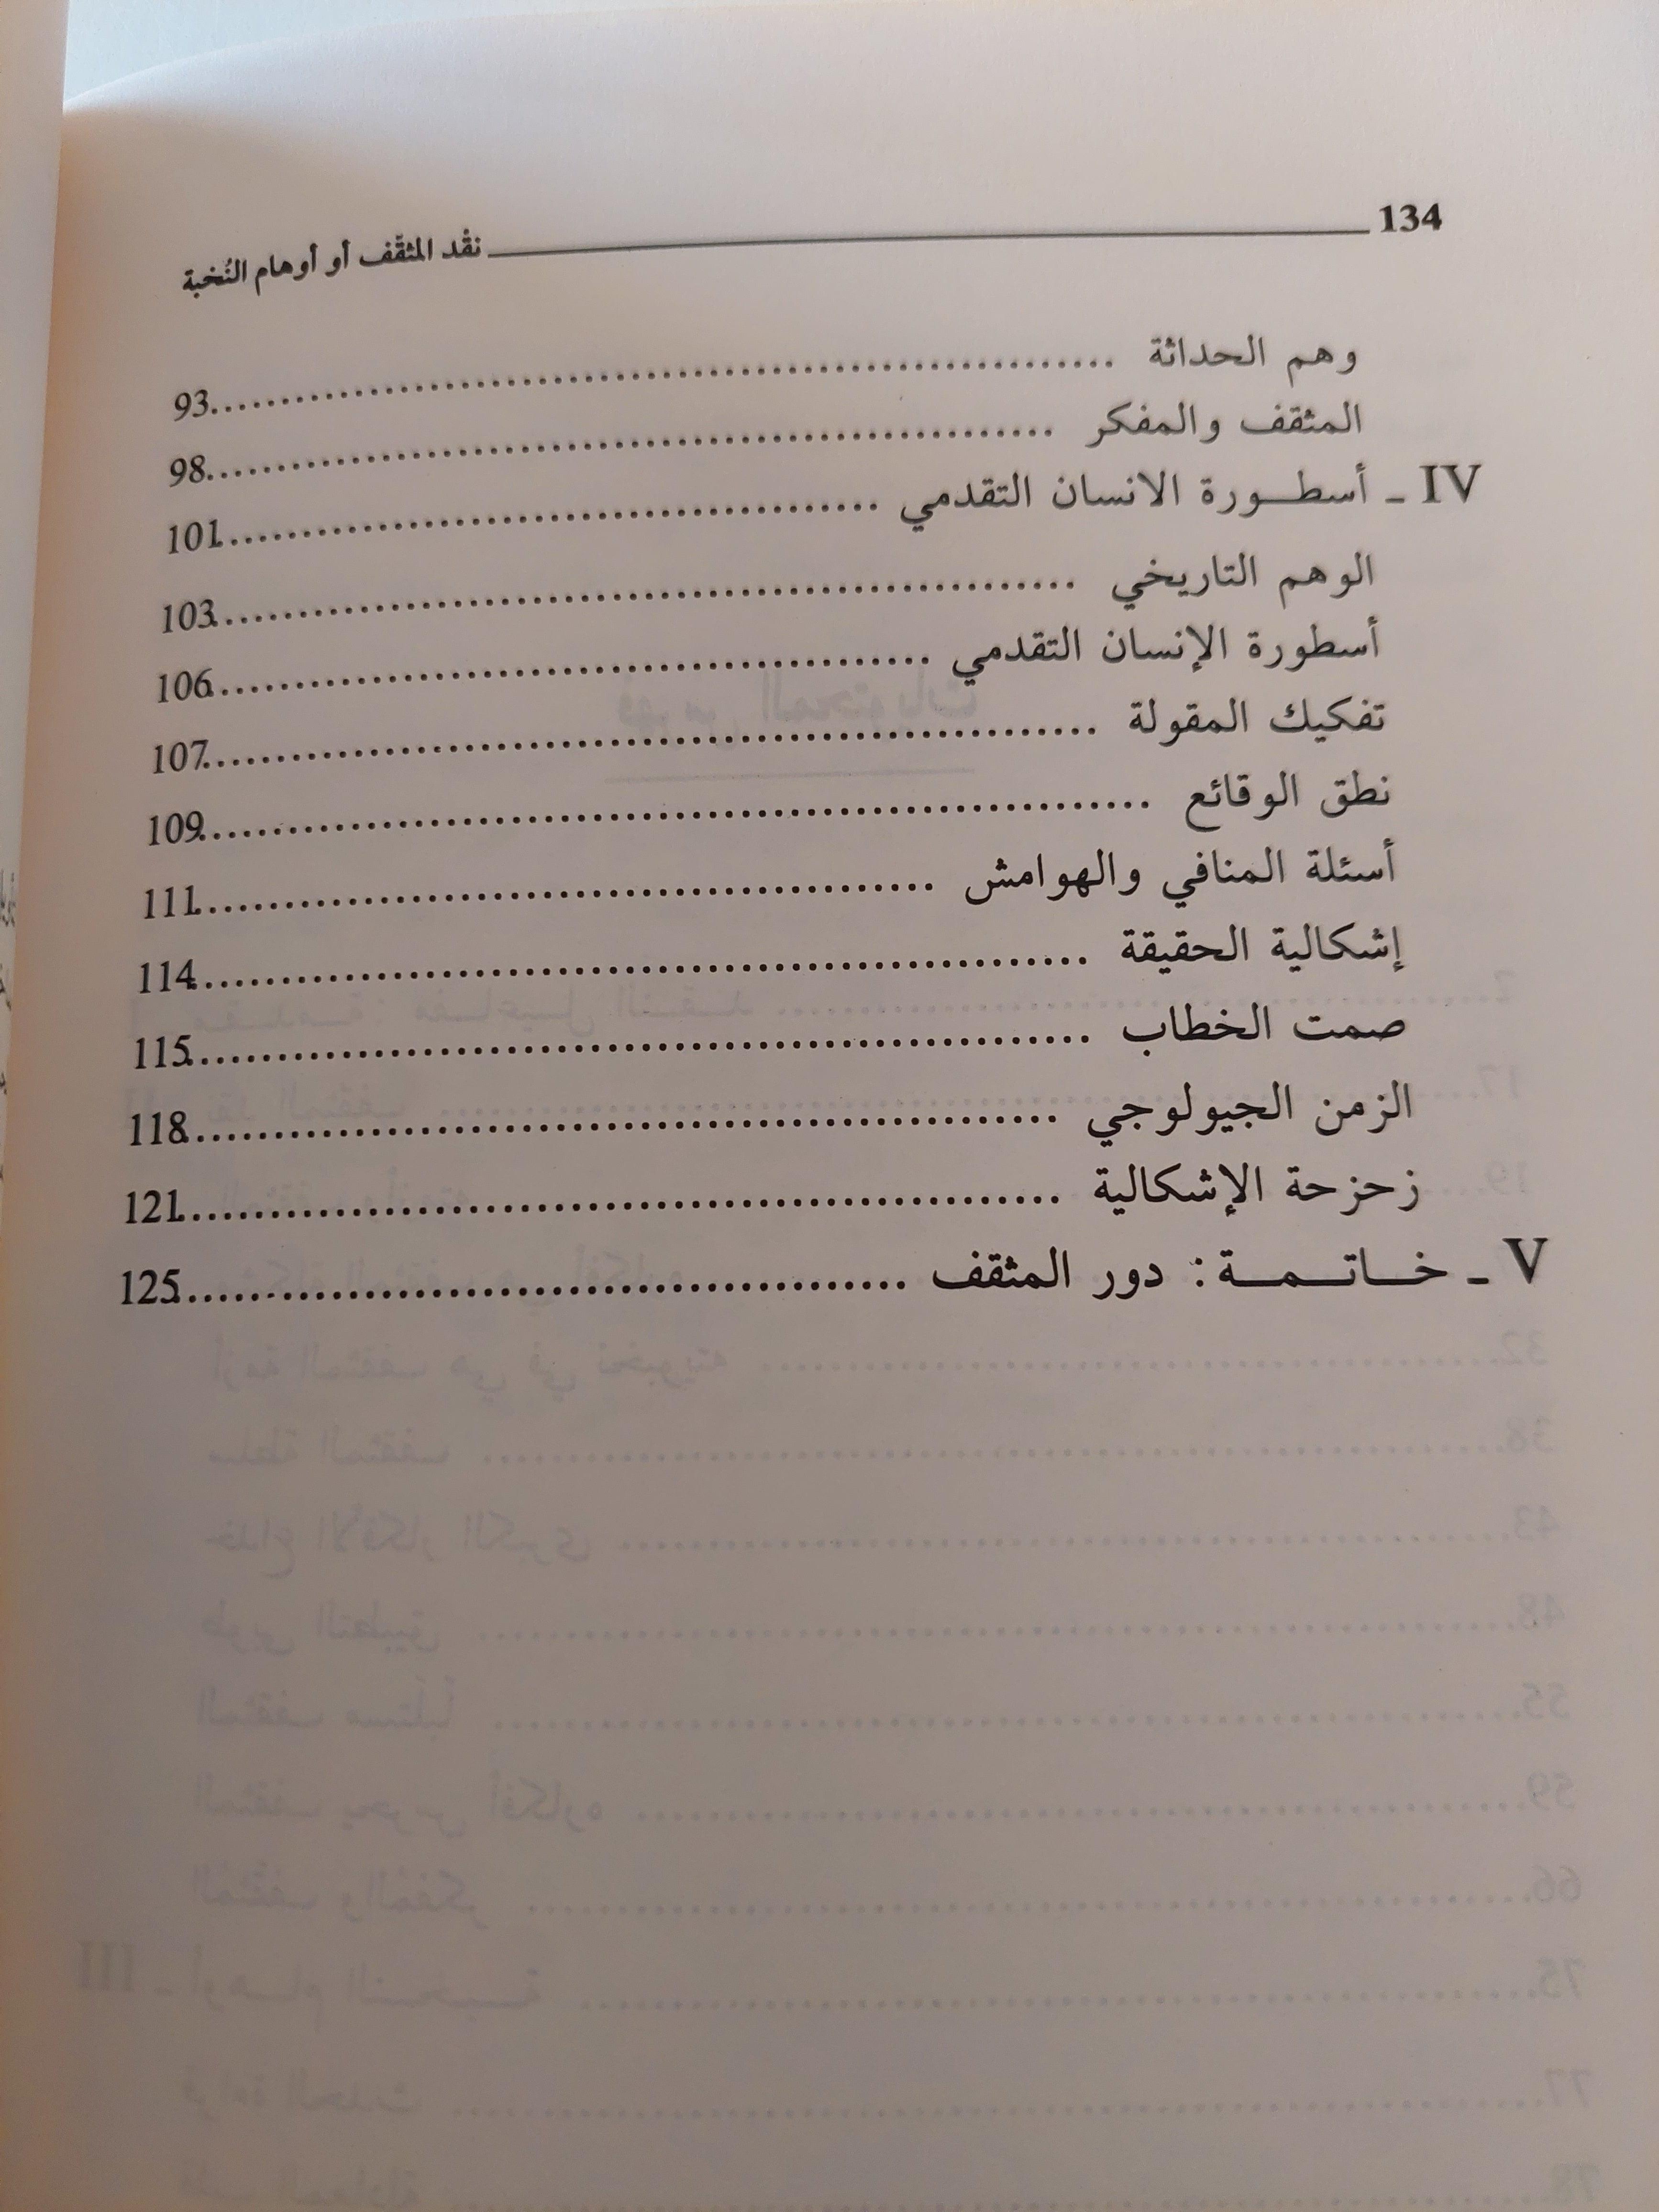 134 نقْد المثقّف أو أوهام النُخبة
وهم الحداثة ........................................ 93
المثقف والمفكر ........................................ 98
IV ـ أسطـورة الانسان التقدمي ........................................ 101
الوهم التاريخي ........................................ 103
أسطورة الإنسان التقدمي ........................................ 106
تفكيك المقولة ........................................ 107
نطق الوقائع ........................................ 109
أسئلة المنافي والهوامش ........................................ 111
إشكالية الحقيقة ........................................ 114
صمت الخطاب ........................................ 115
الزمن الجيولوجي ........................................ 118
زحزحة الإشكالية ........................................ 121
V ـ خـاتـمـة: دور المثقف ........................................ 125